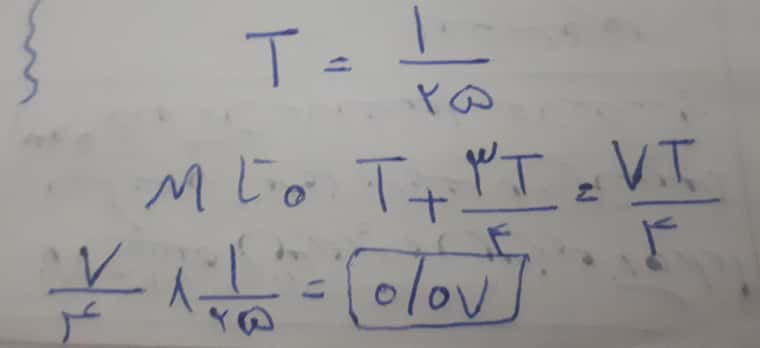 T = ۱/۲۵
M تا ۰ T + ۳T/۴ = ۷T/۴
۷/۴ × ۱/۲۵ = ۰/۰۷